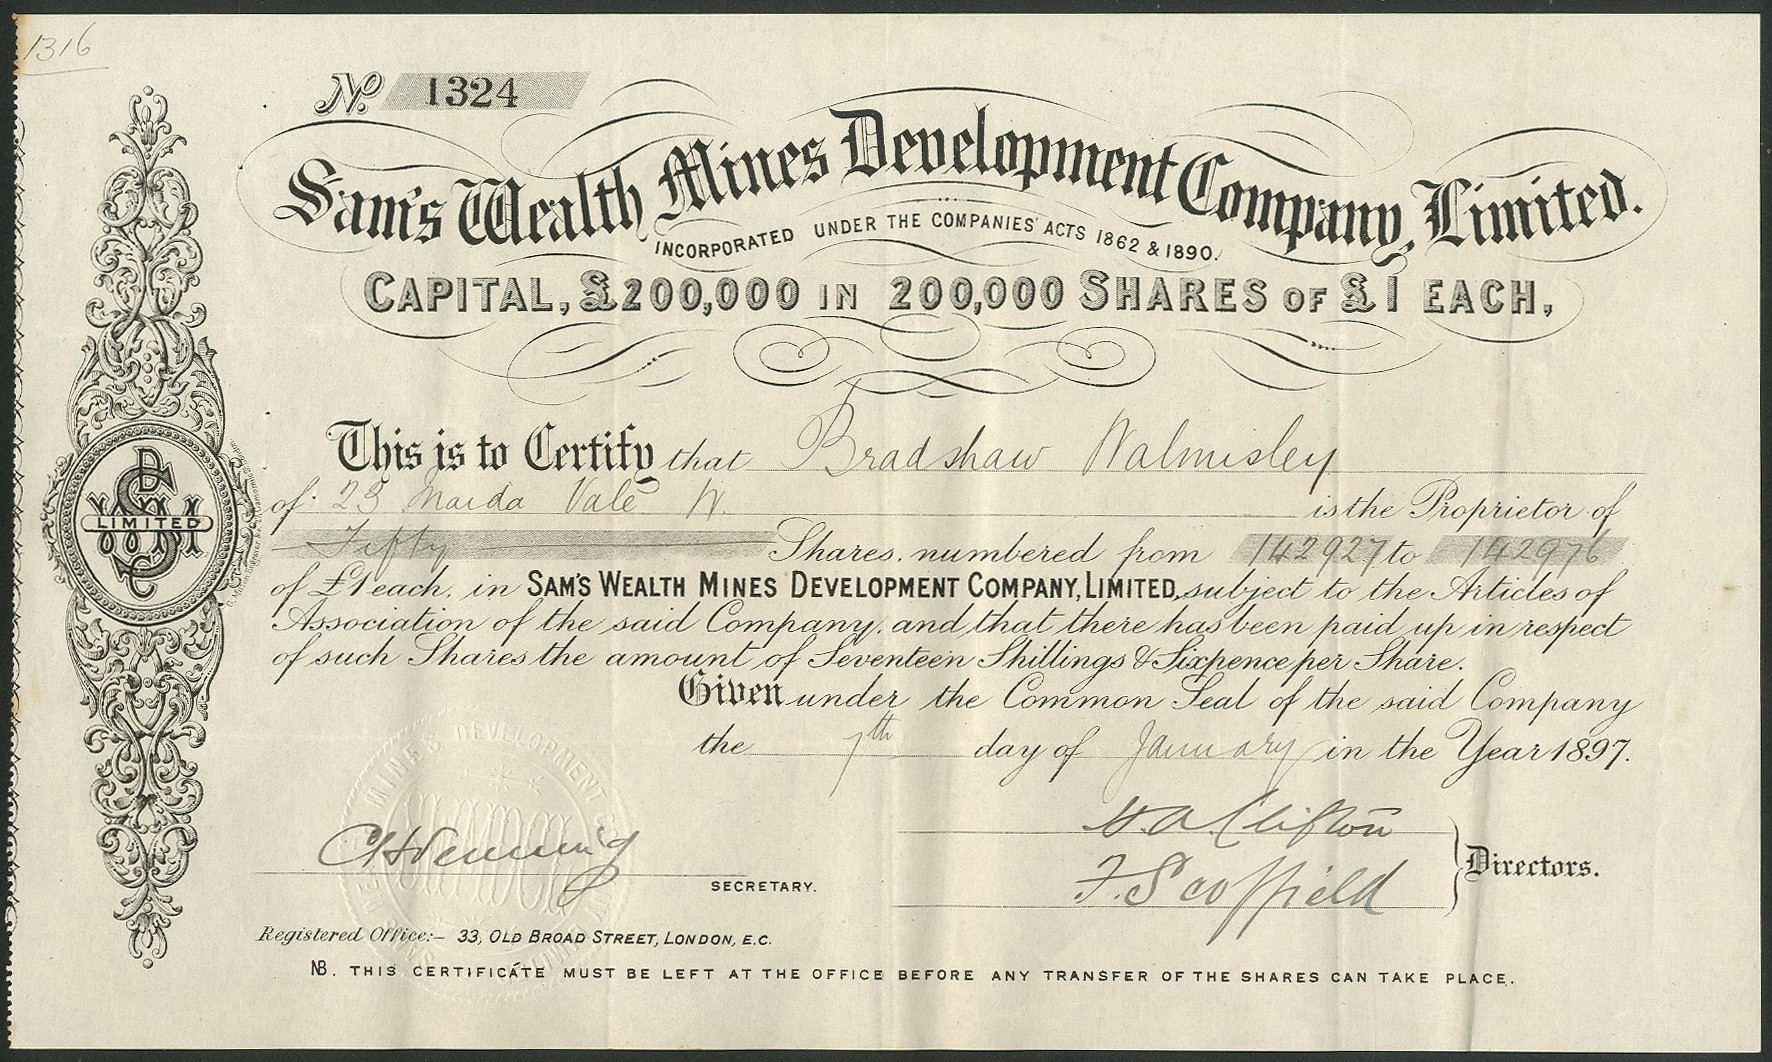 1316
No. 1324
Sam's Wealth Mines Development Company, Limited.
INCORPORATED UNDER THE COMPANIES' ACTS 1862 & 1890.
CAPITAL, £200,000 IN 200,000 SHARES OF £1 EACH,
This is to Certify that Bradshaw Walmisley
of 23 Maida Vale W. is the Proprietor of
Fifty Shares, numbered from 142927 to 142976
of £1 each, in SAM'S WEALTH MINES DEVELOPMENT COMPANY, LIMITED, subject to the Articles of
Association of the said Company, and that there has been paid up in respect
of such Shares the amount of Seventeen Shillings & Sixpence per Share.
Given under the Common Seal of the said Company
the 7th day of January in the Year 1897.
LIMITED
MINES DEVELOPMENT
H. A. Clifton
F. Scoffield
Directors.
SECRETARY.
Registered Office:- 33, OLD BROAD STREET, LONDON, E.C.
NB. THIS CERTIFICATE MUST BE LEFT AT THE OFFICE BEFORE ANY TRANSFER OF THE SHARES CAN TAKE PLACE.